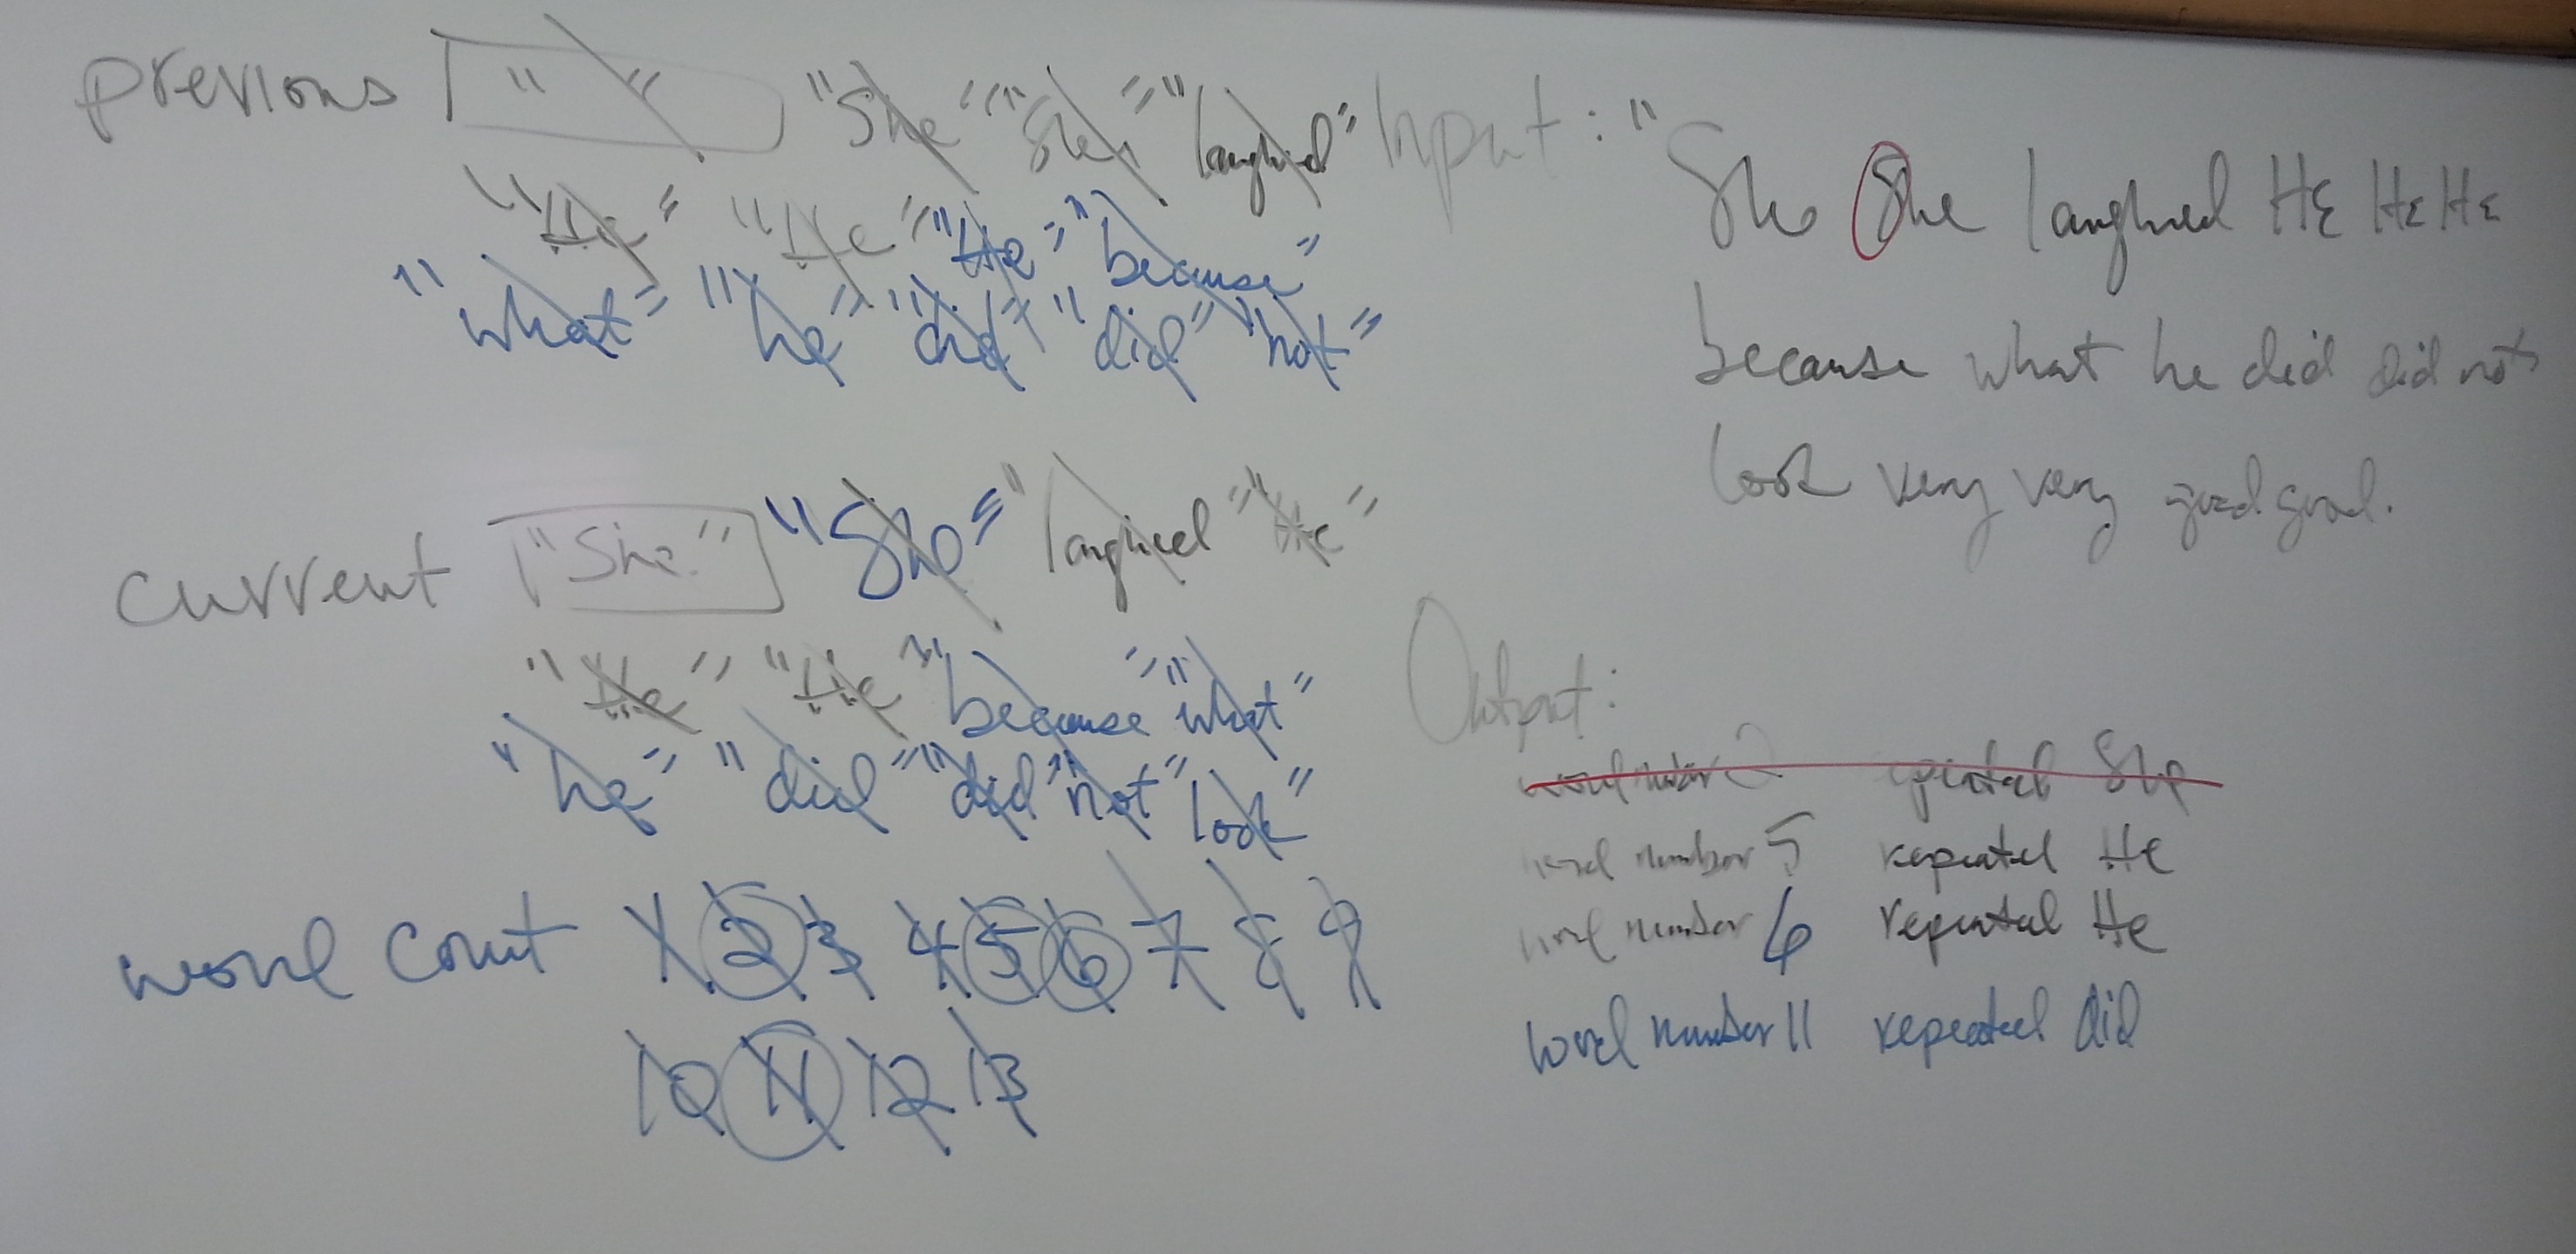 previous " " "She" "She" "laughed"
"He" "He" "He" "because"
"what" "he" "did" "did" "not"
current "She" "She" "laughed" "He"
"He" "He" "because" "what"
"he" "did" "did" "not" "look"
word count 1 2 3 4 5 6 7 8 9
10 11 12 13
Input: "She She laughed HE HE HE
because what he did did not
look very very good good.
Output:
word number 2 repeated She
word number 5 repeated He
word number 6 repeated He
word number 11 repeated did